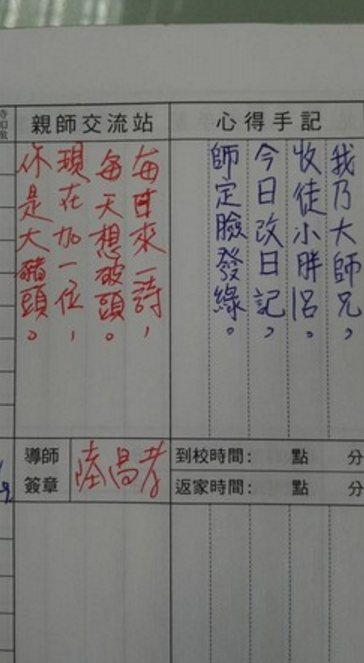 心得手記
我乃大師兄，
收徒小胖呂。
今日改日記，
師定臉發綠。
親師交流站
每日來一詩，
每天想破頭。
現在加一位，
你是大豬頭。
導師
簽章
陸昌孝
到校時間： 點 分
返家時間： 點 分